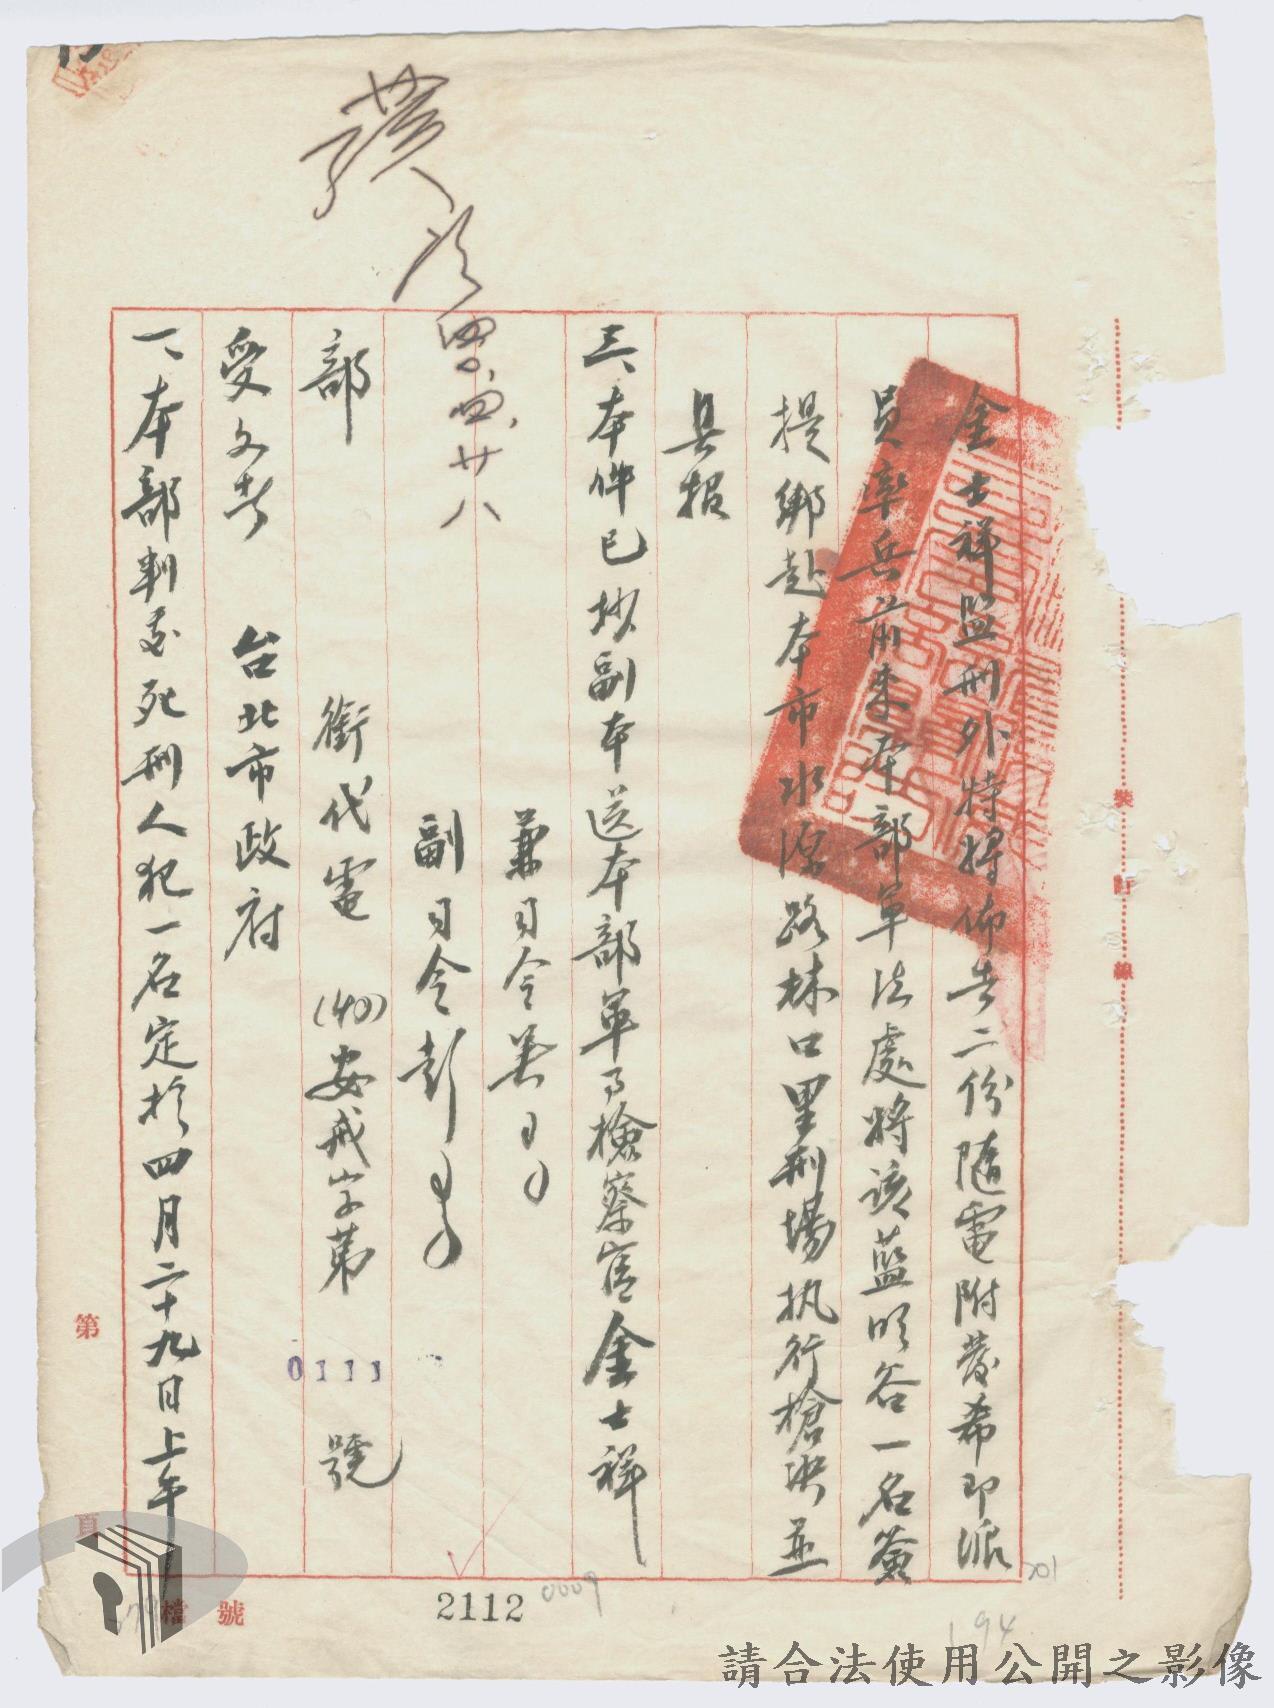 金士祥監刑外特將佈告二份隨電附發希即派
員率兵前來本部軍法處將該藍明谷一名簽
提綁赴本市水源路林口里刑場执行槍决並
具报
三、本件已抄副本送本部軍事檢察官金士祥
兼司令吳
副司令彭
部 銜代電 (40)安戒字第 0111 號
受文者 台北市政府
一、本部判處死刑人犯一名定於四月二十九日上午
四、四、廿八
裝 訂 線
第 頁
檔 號
2112
0009
201
194
請合法使用公開之影像